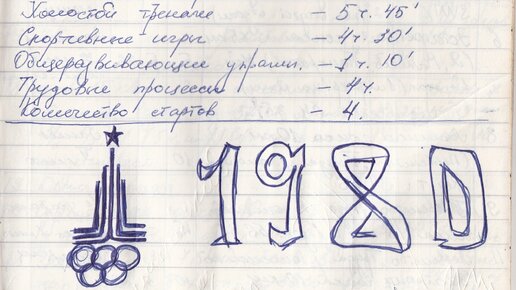 Холостой тренаж – 5 ч. 45'
Спортивные игры – 4ч. 30'
Общеразвивающие упражн. – 1ч. 10'
Трудовые процессы – 4ч.
Количество стартов – 4.
1980